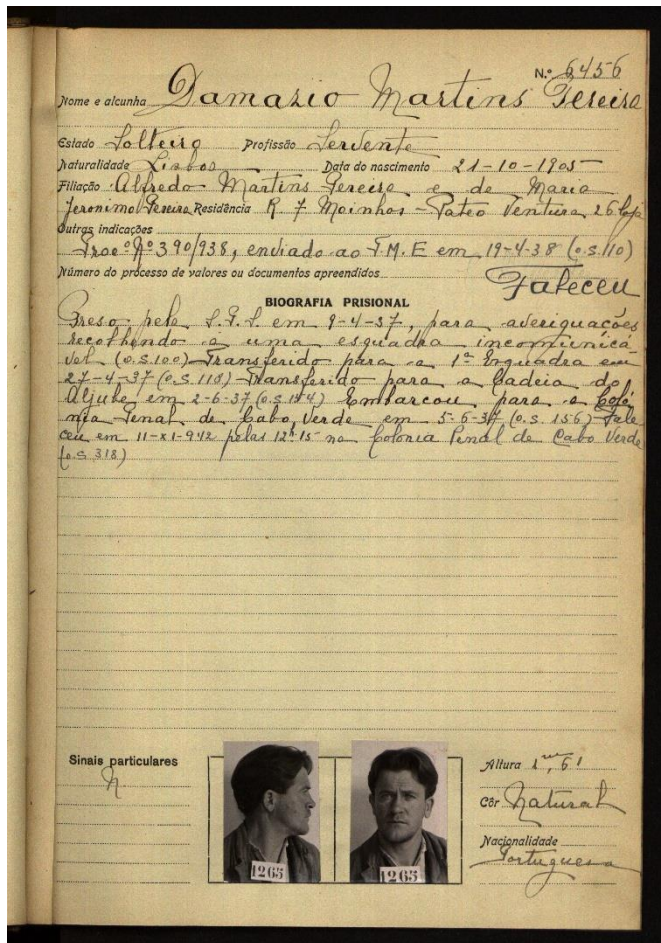 N.º 6456
Nome e alcunha Damazio Martins Pereira
Estado Solteiro Profissão Servente
Naturalidade Lisboa Data do nascimento 21-10-1905
Filiação Alfredo Martins Pereira e de Maria
Jeronimo Pereira Residência R 7 Moinhos - Pateo Ventura, 26 loja
Outras indicações
Proc.º Nº 390/938, enviado ao T.M.E em 19-4-38 (o.s.110)
Número do processo de valores ou documentos apreendidos
Faleceu
BIOGRAFIA PRISIONAL
Preso pela S.P.S. em 9-4-37, para averiguações
recolhendo a uma esquadra incomunicá
vel (o.s.100) Transferido para a 1ª Esquadra em
27-4-37 (o.s. 118) Transferido para a Cadeia do
Aljube em 2-6-37 (o.s. 154) Embarcou para a Coló
nia Penal de Cabo Verde em 5-6-37 (o.s. 156) Fale
ceu em 11-XI-942 pelas 12h15 na Colonia Penal de Cabo Verde
(o.s 318)
Sinais particulares
N
1265
1265
Altura 1m,61
Côr Natural
Nacionalidade
Portuguesa